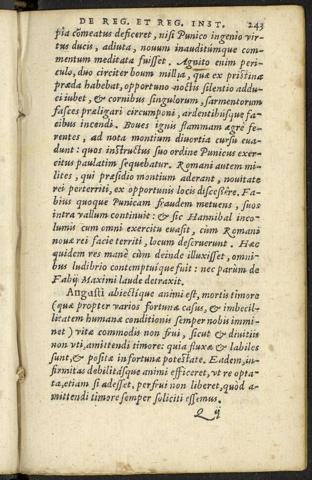 DE REG. ET REG. INST. 243
pia cōmeatus deficeret, nisi Punico ingenio vir-
tus ducis, adiuta, nouum inauditúmque com-
mentum meditata fuisset. Agnito enim peri-
culo, duo circiter boum millia, quæ ex pristina
præda habebat, opportuno noctis silentio addu-
ci iubet, & cornibus singulorum, sarmentorum
fasces præligari circumponi, ardentibusque fa-
cibus incendi. Boues ignis flammam ægre fe-
rentes, ad nota montium diuortia cursu eua-
dunt: quos instructus suo ordine Punicus exer-
citus paulatim sequebatur. Romani autem mi-
lites, qui præsidio montium aderant, nouitate
rei perterriti, ex opportunis locis discessêre. Fa-
bius quoque Punicam fraudem metuens, suos
intra vallum continuit: & sic Hannibal inco-
lumis cum omni exercitu euasit, cùm Romani
noua rei facie territi, locum deseruerunt. Hæc
quidem res mane cùm deinde illuxisset, omni-
bus ludibrio contemptuique fuit: nec parùm de
Fabij Maximi laude detraxit.
Angusti abiectíque animi est, mortis timore
(quæ propter varios fortunæ casus, & imbecil-
litatem humanæ conditionis semper nobis immi-
net) vitæ commodis non frui, sicut & diuitiis
non vti, amittendi timore: quia fluxæ & labiles
sunt, & positæ in fortunæ potestate. Eadem, in-
firmitas debilitásque animi efficeret, vt re opta-
ta, etiam si adesset, perfrui non liberet, quòd a-
mittendi timore semper soliciti essemus.
Q ij